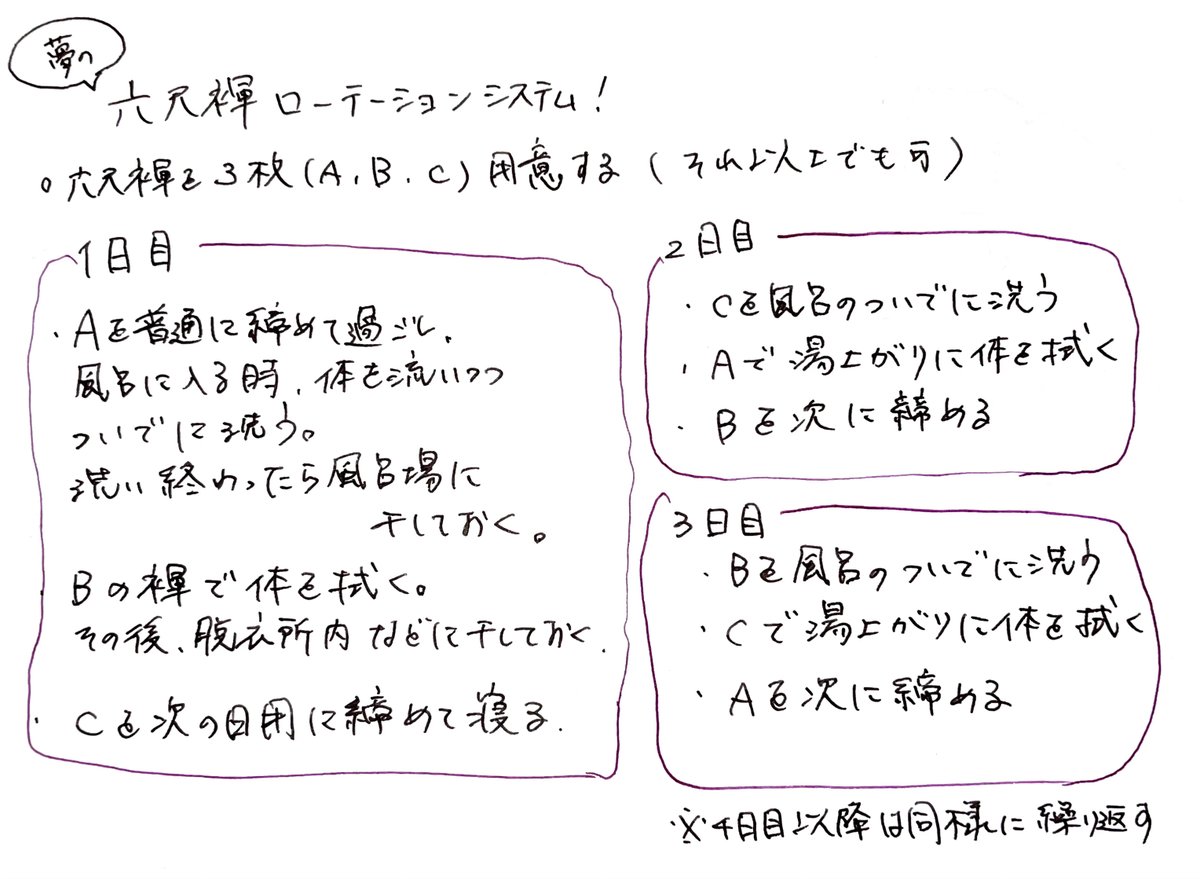 夢の
六尺褌ローテーションシステム!
○六尺褌を3枚(A、B、C)用意する(それ以上でも可)
1日目
・Aを普通に締めて過ごし、
風呂に入る時、体を流しつつ
ついでに洗う。
洗い終わったら風呂場に
干しておく。
Bの褌で体を拭く。
その後、脱衣所内などに干しておく.
・Cを次の日用に締めて寝る.
2日目
・Cを風呂のついでに洗う
・Aで湯上がりに体を拭く
・Bを次に締める
3日目
・Bを風呂のついでに洗う
・Cで湯上がりに体を拭く
・Aを次に締める
※4日目以降は同様に繰り返す